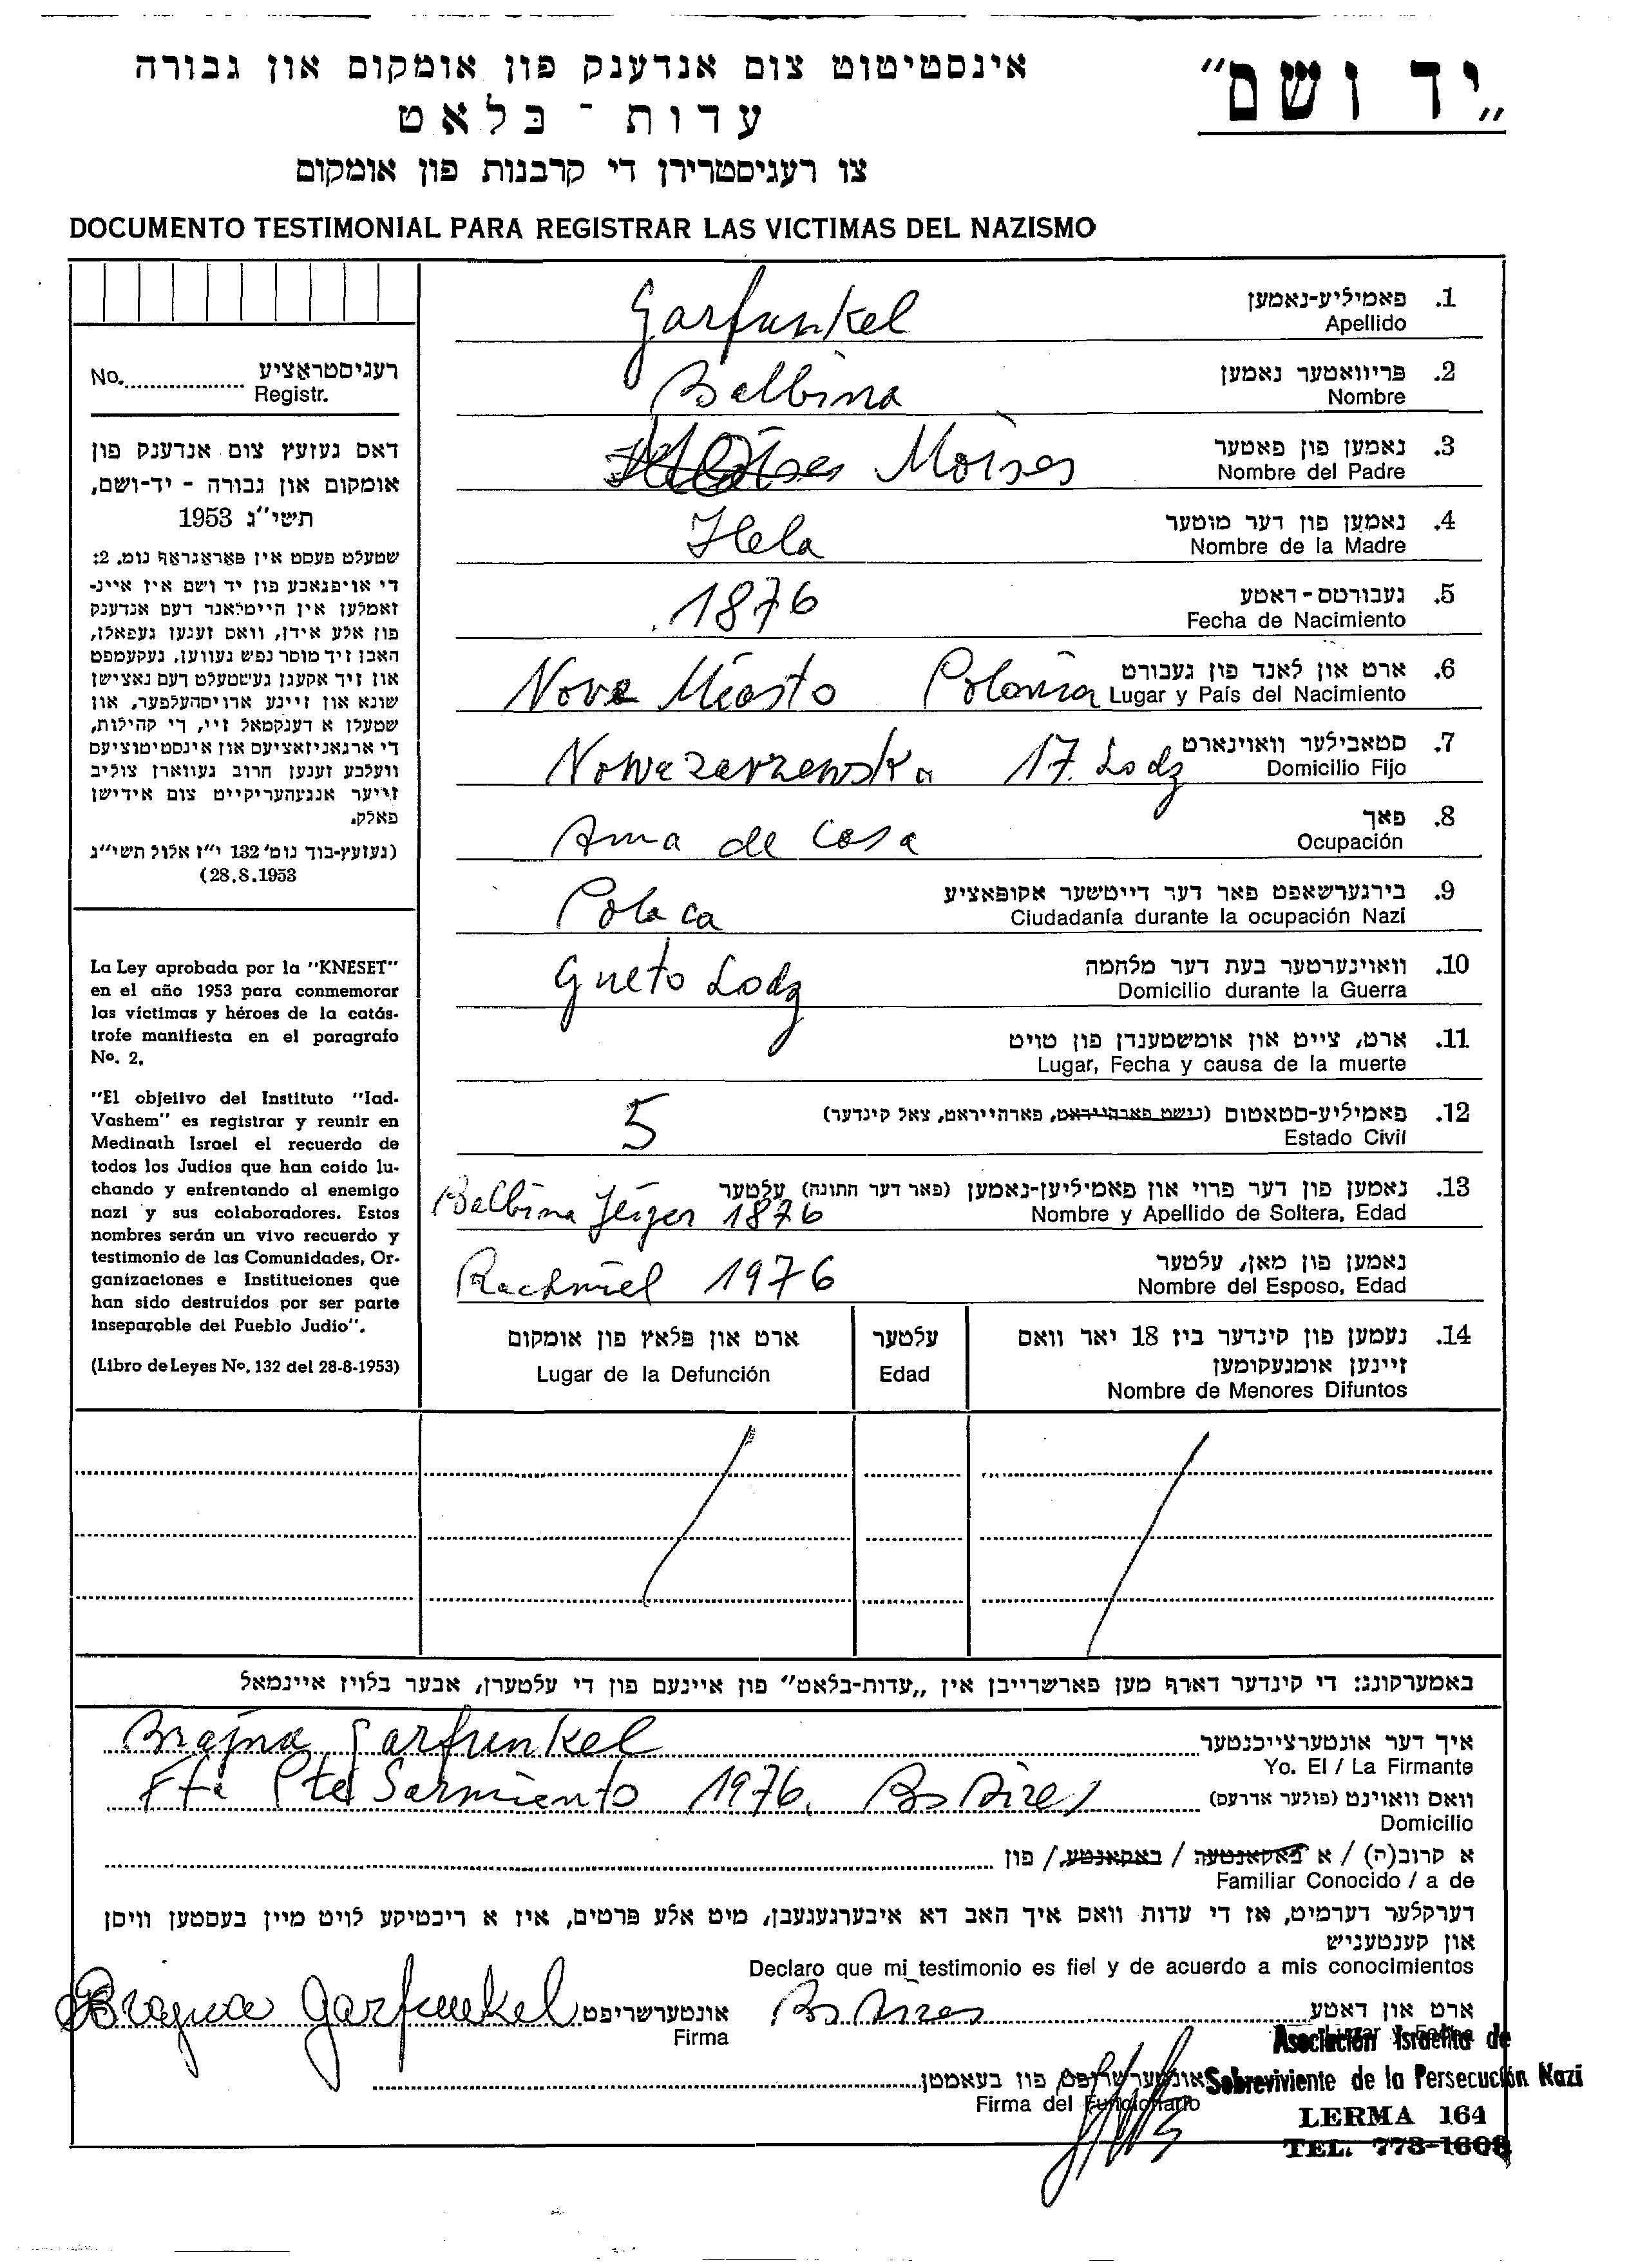 „יד ושם”
אינסטיטוט צום אנדענק פון אומקום און גבורה
עדות - בלאט
צו רעגיסטרירן די קרבנות פון אומקום
DOCUMENTO TESTIMONIAL PARA REGISTRAR LAS VICTIMAS DEL NAZISMO
רעגיסטראציע No.
Registr.
דאס געזעץ צום אנדענק פון
אומקום און גבורה - יד-ושם,
תשי"ג 1953
שטעלט פעסט אין פאראגראף נומ. 2:
די אויפגאבע פון יד ושם איז איינ-
זאמלען אין היימלאנד דעם אנדענק
פון אלע אידן, וואס זענען געפאלן,
האבן זיך מוסר נפש געווען, געקעמפט
און זיך אקעגן געשטעלט דעם נאצישן
שונא און זיינע ארויסהעלפער, און
שטעלן א דענקמאל זיי, די קהילות,
די ארגאניזאציעס און אינסטיטוציעס
וועלכע זענען חרוב געווארן צוליב
זייער אנגעהעריקייט צום אידישן
פאלק.
(געזעץ-בוך נומ' 132 י"ז אלול תשי"ג
28.8.1953)
La Ley aprobada por la "KNESET"
en el año 1953 para conmemorar
las víctimas y héroes de la catás-
trofe manifiesta en el paragrafo
Nº. 2.
"El objetivo del Instituto "Iad-
Vashem" es registrar y reunir en
Medinath Israel el recuerdo de
todos los Judios que han caido lu-
chando y enfrentando al enemigo
nazi y sus colaboradores. Estos
nombres serán un vivo recuerdo y
testimonio de las Comunidades, Or-
ganizaciones e Instituciones que
han sido destruidos por ser parte
inseparable del Pueblo Judio".
(Libro de Leyes Nº. 132 del 28-8-1953)
1. פאמיליע-נאמען
Apellido Garfunkel
2. פריוואטער נאמען
Nombre Balbina
3. נאמען פון פאטער
Nombre del Padre Moises
4. נאמען פון דער מוטער
Nombre de la Madre Hela
5. געבורטס-דאטע
Fecha de Nacimiento 1876
6. ארט און לאנד פון געבורט
Lugar y País del Nacimiento Nove Miasto Polonia
7. סטאבילער וואוינארט
Domicilio Fijo Nowazarzewska 17. Lodz
8. פאך
Ocupación Ama de casa
9. בירגערשאפט פאר דער דייטשער אקופאציע
Ciudadanía durante la ocupación Nazi Polaca
10. וואוינערטער בעת דער מלחמה
Domicilio durante la Guerra Gueto Lodz
11. ארט, צייט און אומשטענדן פון טויט
Lugar, Fecha y causa de la muerte
12. פאמיליע-סטאטוס (נישט פארהייראט, פארהייראט, צאל קינדער)
Estado Civil 5
13. נאמען פון דער פרוי און פאמיליען-נאמען (פאר דער חתונה) עלטער
Nombre y Apellido de Soltera, Edad Balbina Jeiger 1876
נאמען פון מאן, עלטער
Nombre del Esposo, Edad Rachmiel 1976
14. נעמען פון קינדער ביז 18 יאר וואס
זיינען אומגעקומען
Nombre de Menores Difuntos
עלטער
Edad
ארט און פלאץ פון אומקום
Lugar de la Defunción
באמערקונג: די קינדער דארף מען פארשרייבן אין „עדות-בלאט” פון איינעם פון די עלטערן, אבער בלויז איינמאל
איך דער אונטערצייכנטער
Yo. El / La Firmante Brajna Garfunkel
וואס וואוינט (פולער אדרעס)
Domicilio Pte Sarmiento 1976. Bs Aires
א קרוב(ה) / א באקאנטער / באקאנטע / פון
Familiar Conocido / a de
דערקלער דערמיט, אז די עדות וואס איך האב דא איבערגעגעבן, מיט אלע פרטים, איז א ריכטיקע לויט מיין בעסטען וויסן
און קענטעניש
Declaro que mi testimonio es fiel y de acuerdo a mis conocimientos
ארט און דאטע Bs Aires
אונטערשריפט Brajna Garfunkel
Firma
אונטערשריפט פון בעאמטן
Firma del Funcionario
Asociación Israelita de
Sobreviviente de la Persecución Nazi
LERMA 164
TEL. 773-1608